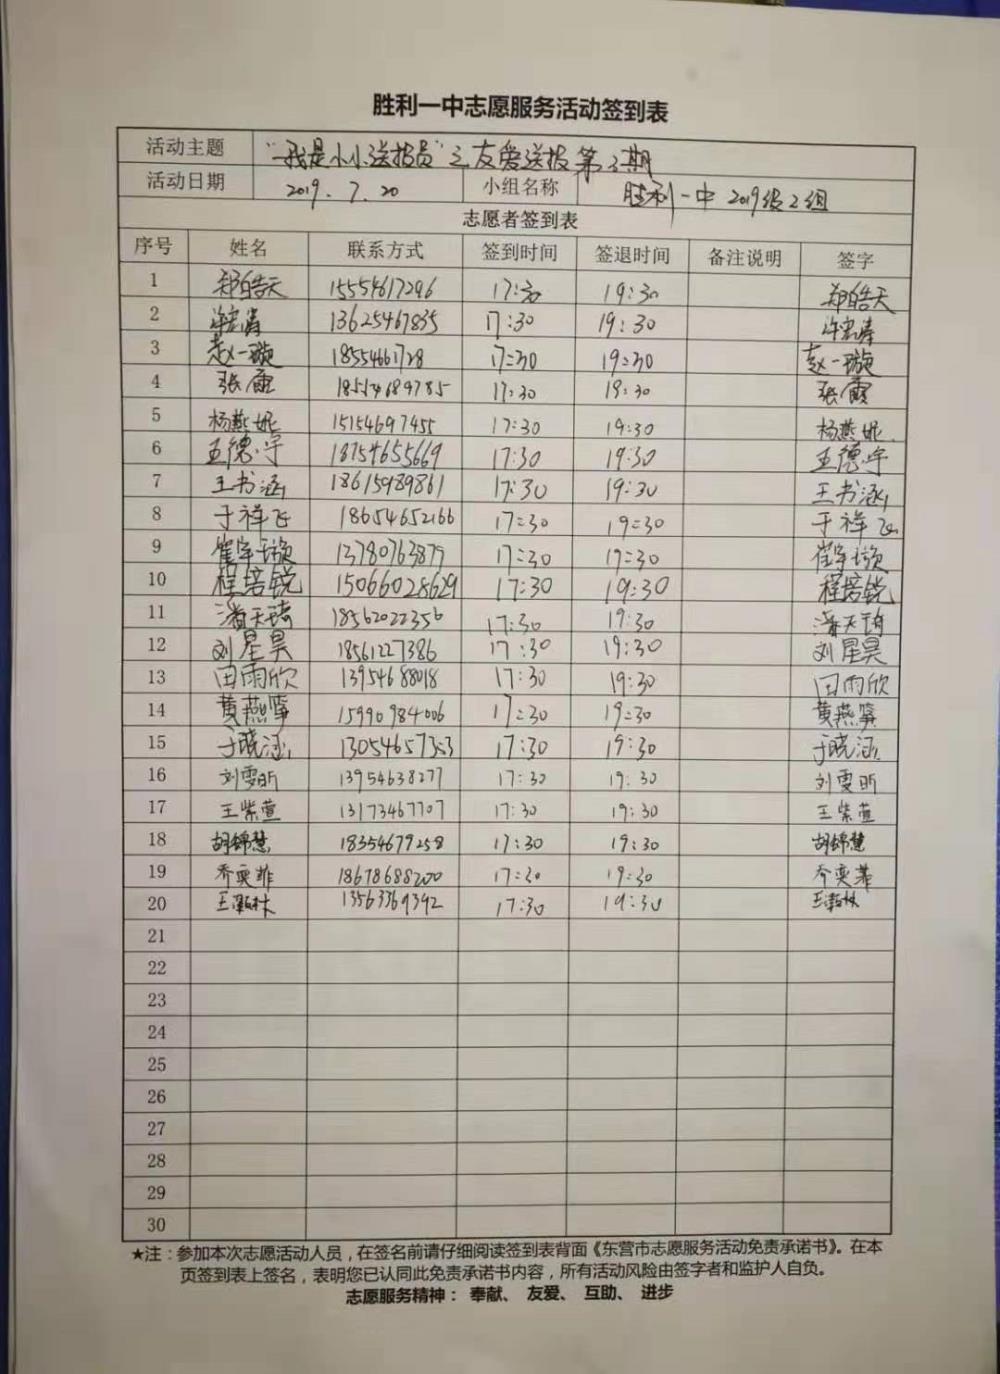 胜利一中志愿服务活动签到表
活动主题 "我是小小送报员"之友爱送报第3期
活动日期 2019.7.20 小组名称 胜利一中2019级2组
志愿者签到表
序号 姓名 联系方式 签到时间 签退时间 备注说明 签字
1 郑皓天 15554617296 17:30 19:30 郑皓天
2 许宏涛 13625467835 17:30 19:30 许宏涛
3 赵一璇 18554661728 17:30 19:30 赵一璇
4 张霞 18554689785 17:30 19:30 张霞
5 杨燕妮 15154697455 17:30 19:30 杨燕妮
6 王德宇 18754655669 17:30 19:30 王德宇
7 王书涵 18615989861 17:30 19:30 王书涵
8 于祥飞 18654652166 17:30 19:30 于祥飞
9 崔宇璇 13780763877 17:30 17:30 崔宇璇
10 程培锐 15066028629 17:30 19:30 程培锐
11 潘天琦 18562022356 17:30 19:30 潘天琦
12 刘星昊 18561227386 17:30 19:30 刘星昊
13 田雨欣 13954688018 17:30 19:30 田雨欣
14 黄燕筝 15990984006 17:30 19:30 黄燕筝
15 于晓涵 13054657353 17:30 19:30 于晓涵
16 刘雯昕 13954638277 17:30 19:30 刘雯昕
17 王紫萱 13173467707 17:30 19:30 王紫萱
18 胡锦慧 18354679258 17:30 19:30 胡锦慧
19 乔奕菲 18678688200 17:30 19:30 乔奕菲
20 13563369392 17:30 19:30
21
22
23
24
25
26
27
28
29
30
★注：参加本次志愿活动人员，在签名前请仔细阅读签到表背面《东营市志愿服务活动免责承诺书》。在本
页签到表上签名，表明您已认同此免责承诺书内容，所有活动风险由签字者和监护人自负。
志愿服务精神： 奉献、 友爱、 互助、 进步